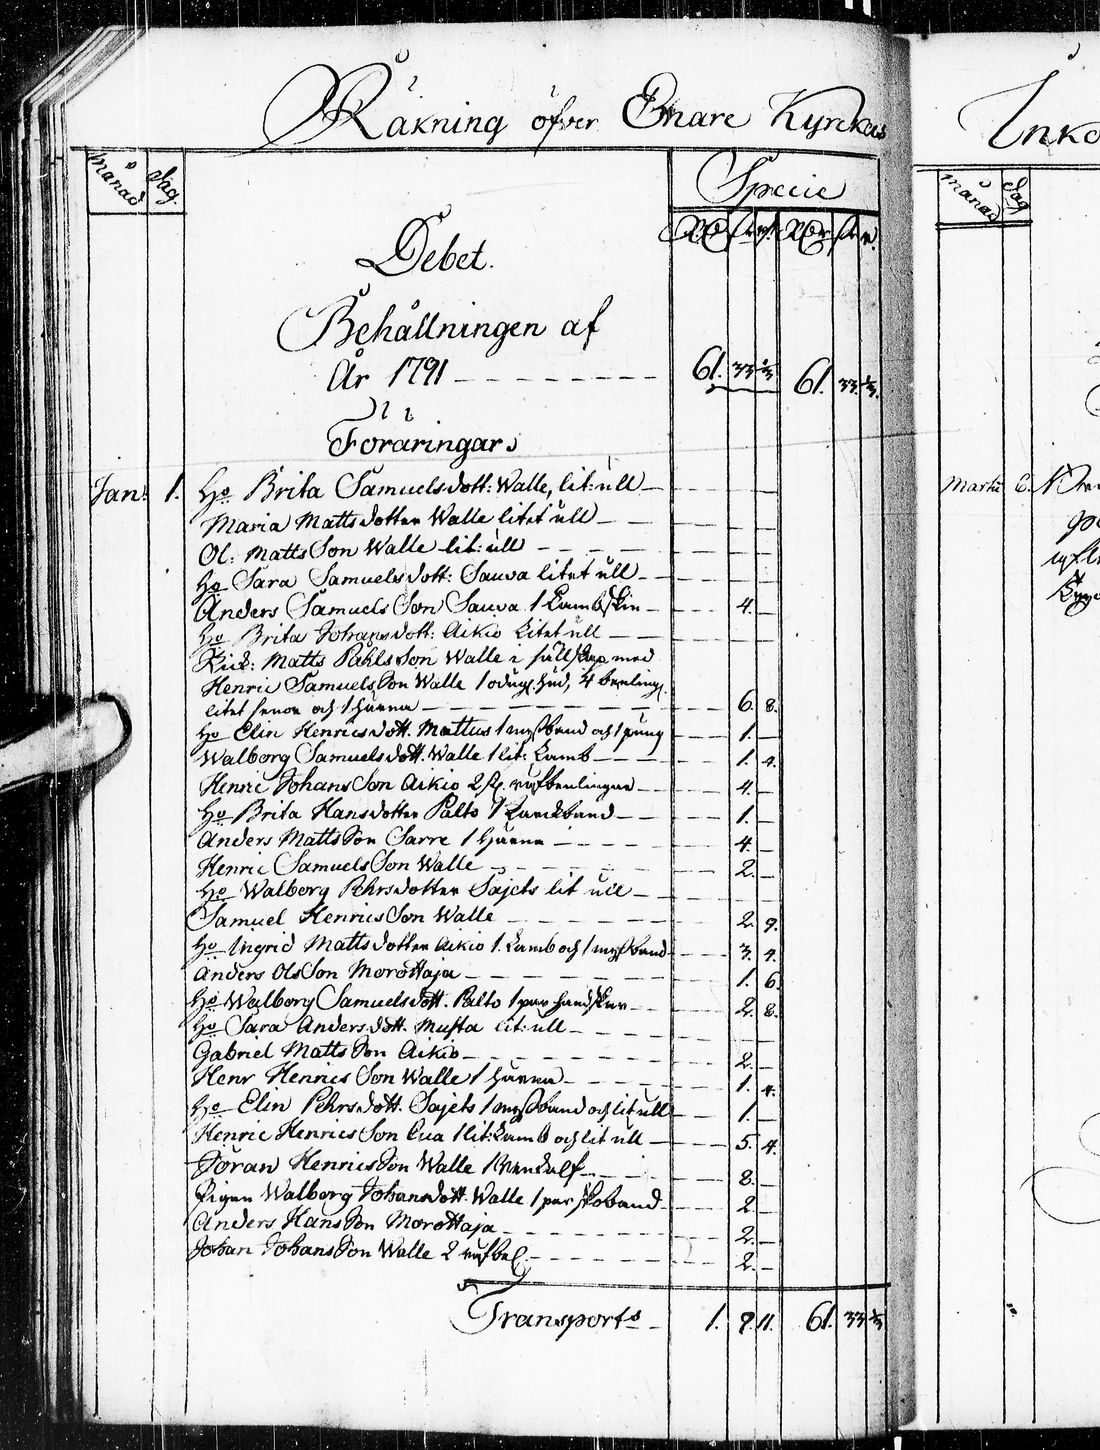 Räkning öfver Enare Kyrckas
månad Dag.
Specie
Debet.
Behållningen af
År 1791 61. 33 61. 33
Föräringar
Jan: 1. Ho Brita Samuelsdott: Walle, lit: ull
Maria Mattsdotter Walle litet ull
Ol: MattsSon Walle lit: ull
Ho Sara Samuelsdott: Sauva litet ull
Anders SamuelsSon Sauva 1 Lambskin 4.
Ho Brita Johansdott: Aikio Litet ull
Matts PåhlsSon Walle i sällskap med
Henric SamuelsSon Walle 1 odugl. hud, 4
litet senor och 1 6. 8.
Ho Elin Henricsdott. Mattus 1 myssband och 1 pung 1.
Walborg Samuelsdott. Walle 1 lit: Lamb 1. 4.
Henric JohansSon Aikio 2 4.
Ho Brita Hansdotter Palto 1 1.
Anders MattsSon Sarre 1 4.
Henric SamuelsSon Walle 2.
Ho Walborg Pehrsdotter Sajets lit ull
Samuel HenricsSon Walle 2. 9.
Ho Ingrid Mattsdotter Aikio 1. Lamb och 1 myssband 3. 4.
Anders OlsSon Morottaja 1. 6.
Ho Walborg Samuelsdott. Palto 1 par handskar 2. 8.
Ho Sara Andersdott. Musta lit: ull
Gabriel MattsSon Aikio 2.
Henr HenricsSon Walle 1 1. 4.
Ho Elin Pehrsdott. Sajets 1 myssband och lit ull 1.
Henric HenricsSon Cua 1 lit: Lamb och lit ull 5. 4.
Göran HenricsSon Walle 1 8.
Pigan Walborg Johansdott. Walle 1 par skoband 2.
Anders HansSon Morottaja 2.
Johan JohansSon Walle 2 2.
Transport 1. 9. 11. 61. 33
Inko
månad Dag
Martii 6.